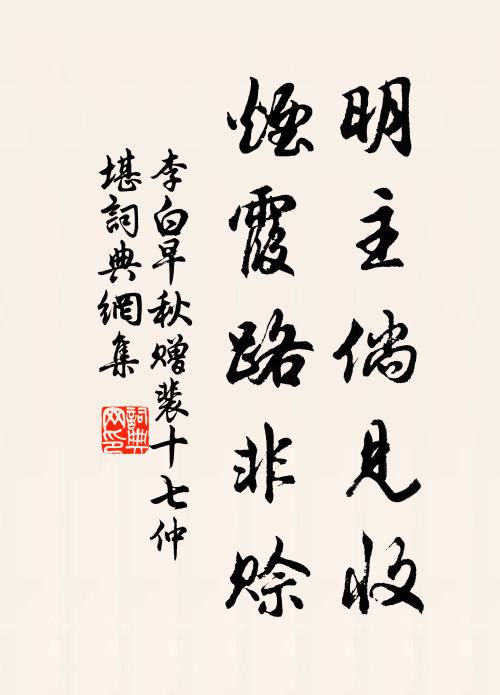 明主倘見收
煙霞路非賒
李白早秋赠裴十七仲
堪詞典網集
詞典
网印